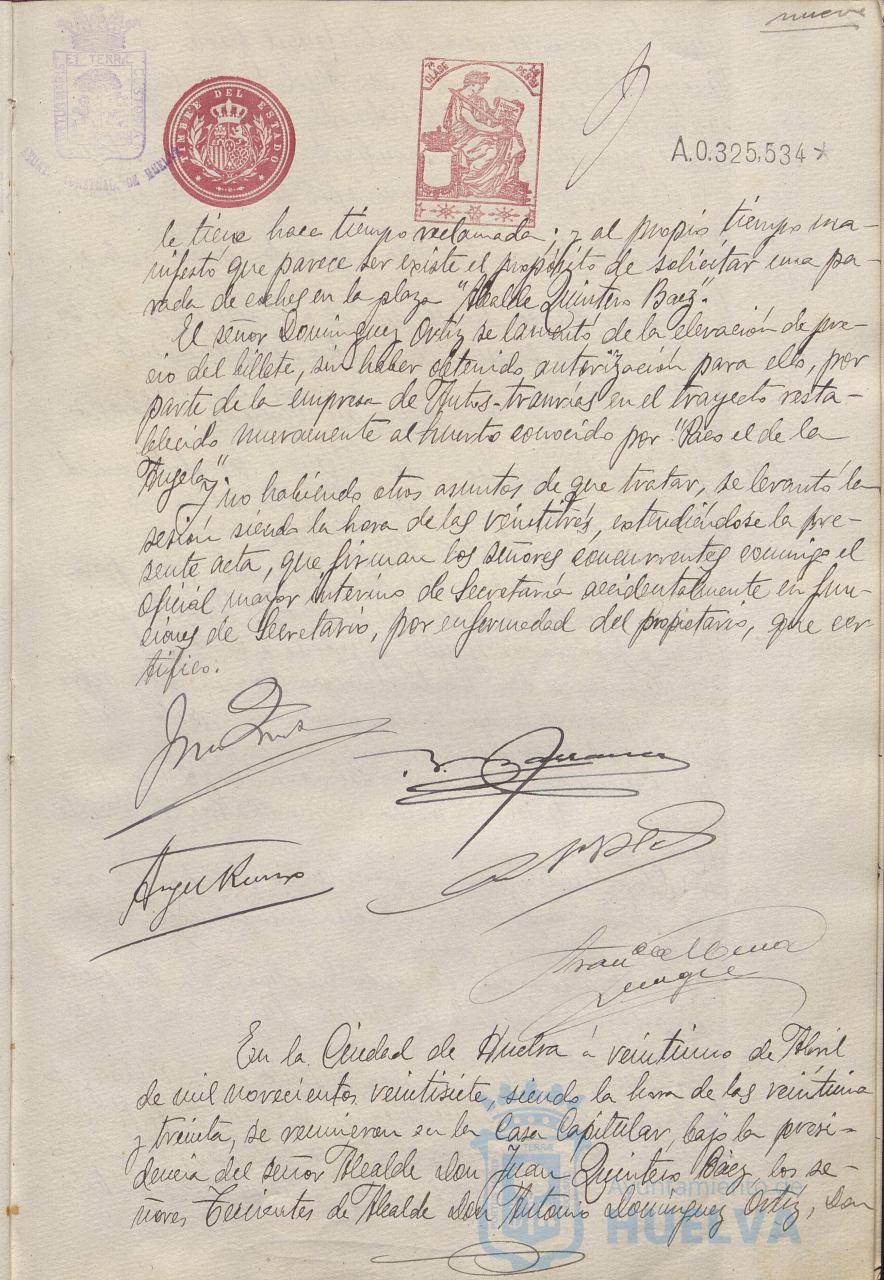 nueve
ET TERRÆ
TIMBRE DEL ESTADO
7ª CLASE
A.0.325,534
AYUNT. CONSTNAL. DE HUELVA
le tiene hace tiempo reclamada; y al propio tiempo ma-
nifestó que parece ser existe el propósito de solicitar una pa-
rada de coches en la plaza "Alcalde Quintero Baez".
El señor Dominguez Ortiz se lamentó de la elevación de pre-
cio del billete, sin haber obtenido autorización para ello, por
parte de la empresa de Autos-tranvías en el trayecto resta-
blecido nuevamente al huerto conocido por "Paco el de la
Angela"
Y no habiendo otros asuntos de que tratar, se levantó la
sesión siendo la hora de las veintitrés, extendiéndose la pre-
sente acta, que firman los señores concurrentes conmigo el
oficial mayor interino de Secretaría accidentalmente en fun-
ciones de Secretario, por enfermedad del propietario, que cer-
tifico.
En la Ciudad de Huelva á veintiuno de Abril
de mil novecientos veintisiete, siendo la hora de las veintiuna
y treinta, se reunieron en la Casa Capitular, bajo la presi-
dencia del señor Alcalde Don Juan Quintero Báez, los se-
ñores Tenientes de Alcalde Don Antonio Dominguez Ortíz, Don
Ayuntamiento de
HUELVA